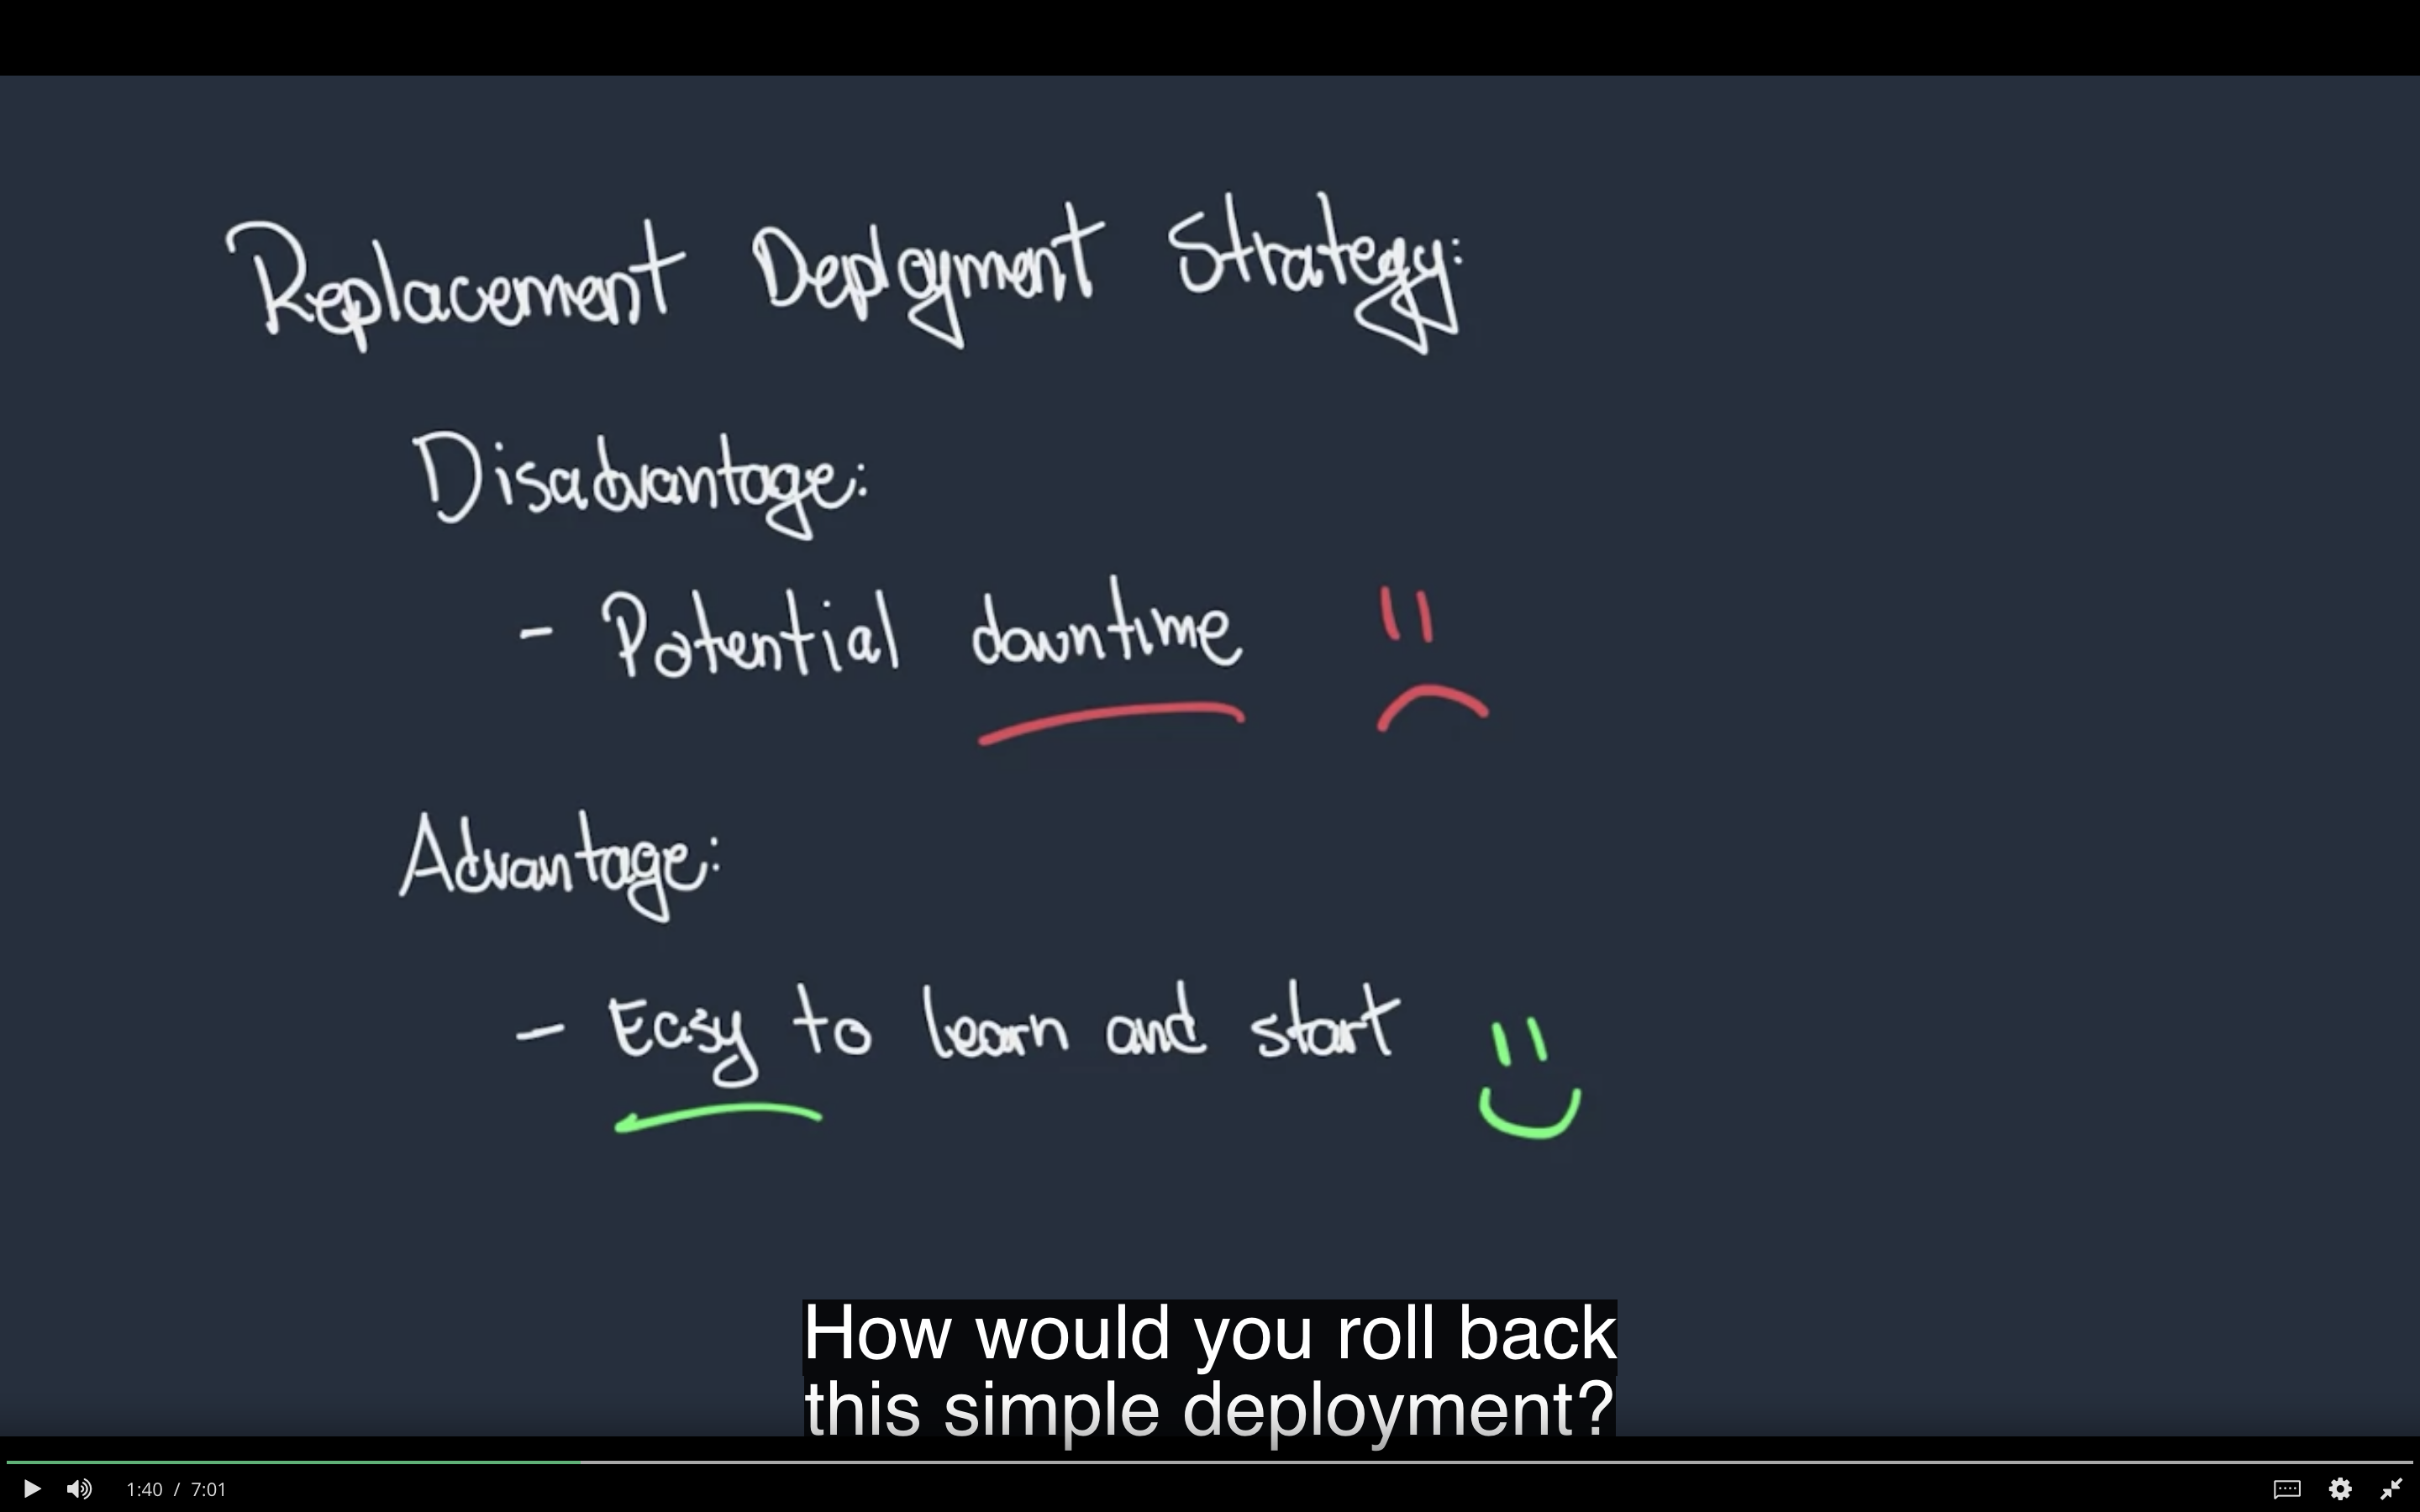 Replacement Deployment Strategy:
Disadvantage:
- Potential downtime
Advantage:
- Easy to learn and start
How would you roll back
this simple deployment?
1:40 / 7:01